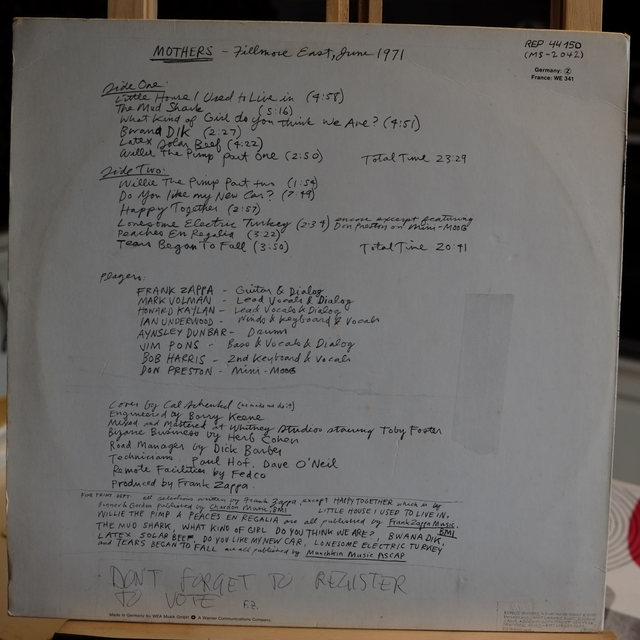 MOTHERS - Fillmore East, June 1971
REP 44150
(MS-2042)
Germany: Z
France: WE 341
Side One:
Little House I Used to Live in (4:58)
The Mud Shark (5:16)
What Kind of Girl do you think we Are? (4:51)
Bwana DIK (2:27)
Latex Solar Beef (4:22)
Willie The Pimp Part One (2:50) Total Time 23:29
Side Two:
Willie The Pimp Part two (1:54)
Do You like my New Car? (7:49)
Happy Together (2:57)
Lonesome Electric Turkey (2:34) encore excerpt featuring
Don Preston on Mini-MOOG
Peaches En Regalia (3:22)
Tears Began To Fall (3:50) Total Time 20:41
Players:
FRANK ZAPPA - Guitar & Dialog
MARK VOLMAN - Lead Vocals & Dialog
HOWARD KAYLAN - Lead Vocals & Dialog
IAN UNDERWOOD - Winds & Keyboard & Vocals
AYNSLEY DUNBAR - Drums
JIM PONS - Bass & Vocals & Dialog
BOB HARRIS - 2nd Keyboard & Vocals
DON PRESTON - Mini-MOOG
Cover by Cal Schenkel
Engineered by Barry Keene
Mixed and Mastered at Whitney Studios starring Toby Foster
Bizarre Business by Herb Cohen
Road Manager by Dick Barber
Technicians Paul Hof, Dave O'Neil
Remote Facilities by Fedco
Produced by Frank Zappa
FINE PRINT DEPT: all selections written by Frank Zappa, except HAPPY TOGETHER which is by
Gordon published by Chardon Music, BMI LITTLE HOUSE I USED TO LIVE IN,
WILLIE THE PIMP & PEACES EN REGALIA are all published by Frank Zappa Music, BMI
THE MUD SHARK, WHAT KIND OF GIRL DO YOU THINK WE ARE?, BWANA DIK,
LATEX SOLAR BEEF, DO YOU LIKE MY NEW CAR, LONESOME ELECTRIC TURKEY
and TEARS BEGAN TO FALL are all published by Munchkin Music ASCAP
DON'T FORGET TO REGISTER
TO VOTE F.Z.
Made in Germany by WEA Musik GmbH A Warner Communications Company